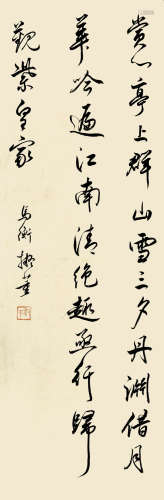 赏心亭上群山雪三夕丹渊借月
华吟遍江南清绝趣亟行归
观紫皇家
马衡拟董